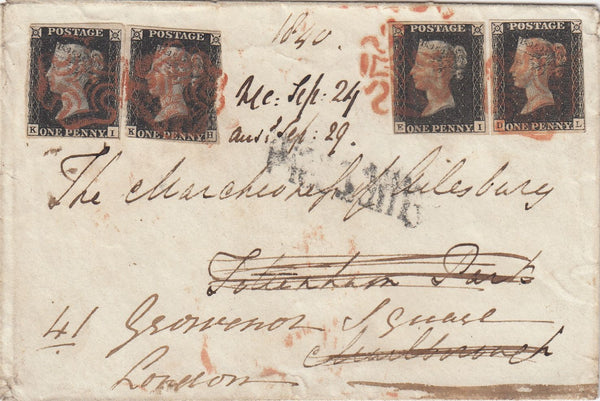 POSTAGE POSTAGE POSTAGE POSTAGE
K ONE PENNY I K ONE PENNY H ONE PENNY I D ONE PENNY L
1840.
Sep: 24
Sep: 29.
The Marchioness of Ailesbury
Tottenham Park
41 Grosvenor Square
Marlborough
London